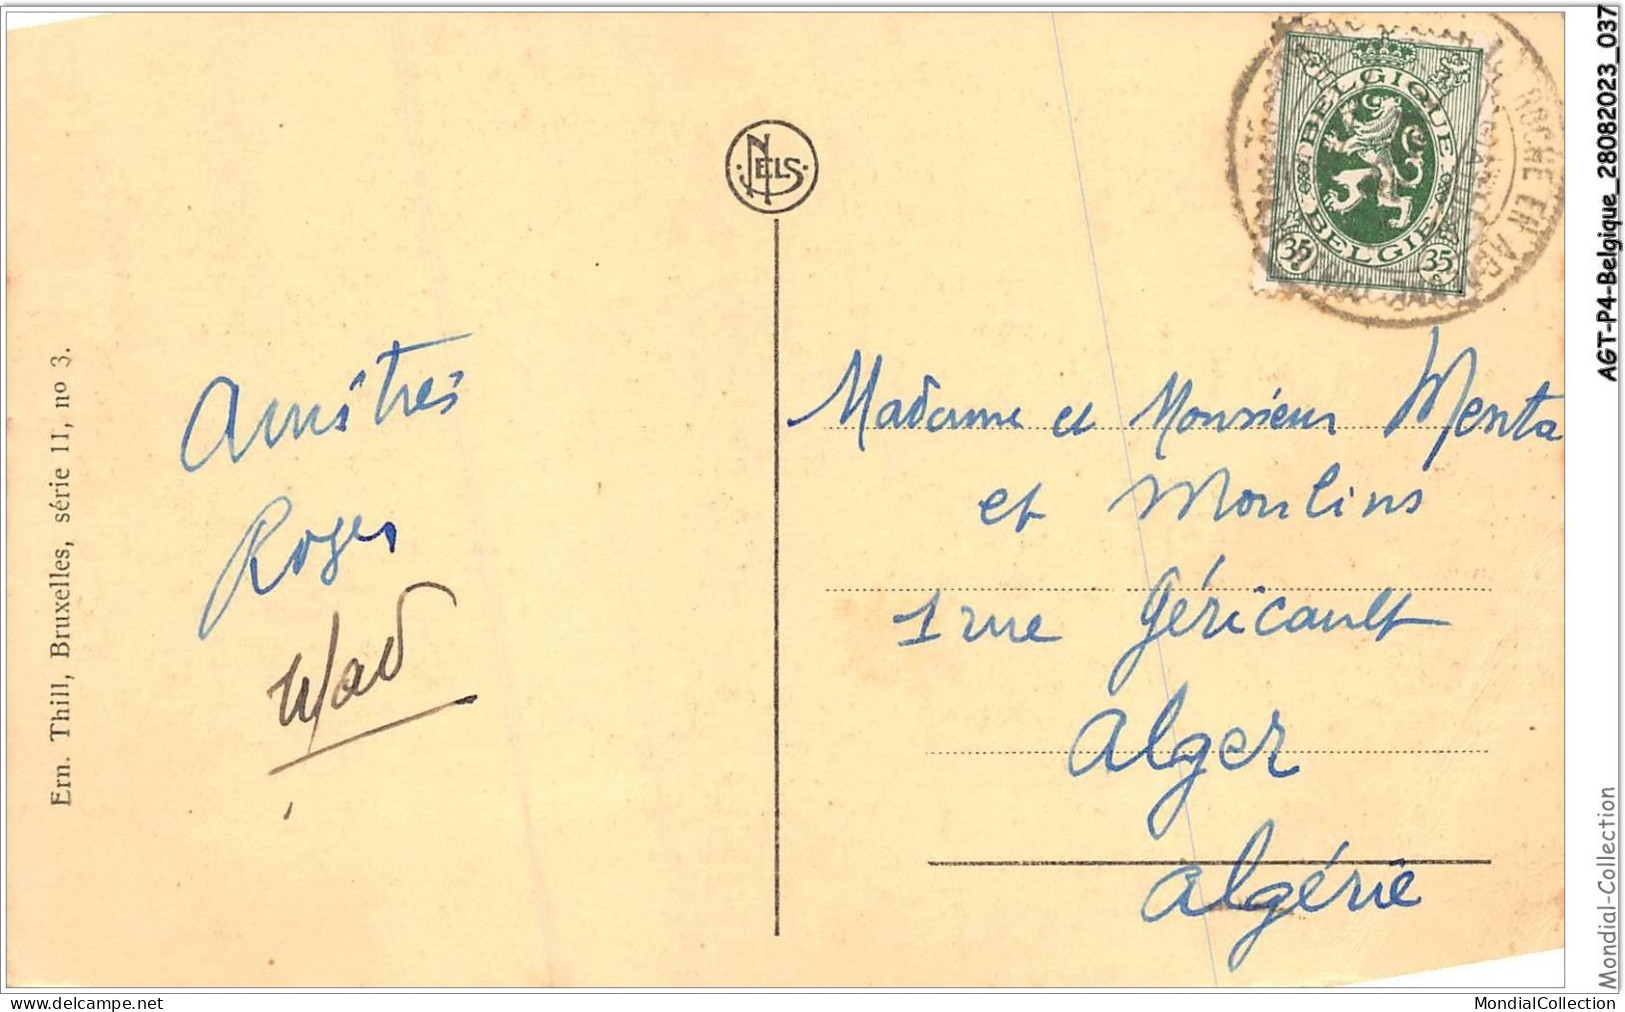 Ern. Thill, Bruxelles, série 11, no 3.
Amitiés
Roger
NELS
BELGIQUE
BELGIE
35 35
ROCHE EN AR
Madame et Monsieur Menta
et Moulins
1 rue Géricault
Alger
Algérie
AGT-P4-Belgique_28082023_037
Mondial-Collection
www.delcampe.net
MondialCollection